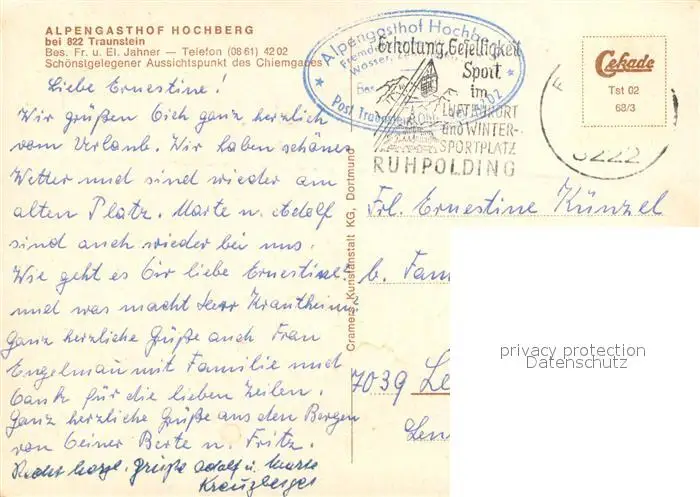 ALPENGASTHOF HOCHBERG
bei 822 Traunstein
Bes. Fr. u. El. Jahner — Telefon (08 61) 42 02
Schönstgelegener Aussichtspunkt des Chiemgaues
Liebe Ernestine!
Wir grüßen Dich ganz herzlich
vom Urlaub. Wir haben schönes
Wetter und sind wieder am
alten Platz. Marte u. Adolf
sind auch wieder bei uns.
Wie geht es Dir liebe Ernestine?
und was macht Herr Krautheim,
Ganz herzliche Grüße auch Frau
Engelman mit Familie und
Dank für die lieben Zeilen.
Ganz herzliche Grüße aus den Bergen
von Deiner Berte u. Fritz.
Recht herzl. Grüße Adolf u. Marte
Kreuzberger
Cramers Kunstanstalt KG, Dortmund
Alpengasthof Hochb
Post Traunstein
Erholung, Geselligkeit
Sport
im
LUFTKURORT
und WINTER-
SPORTPLATZ
RUHPOLDING
8222
Cekade
Tst 02
68/3
Frl. Ernestine Künzel
b. Fam
7039 Le
privacy protection
Datenschutz